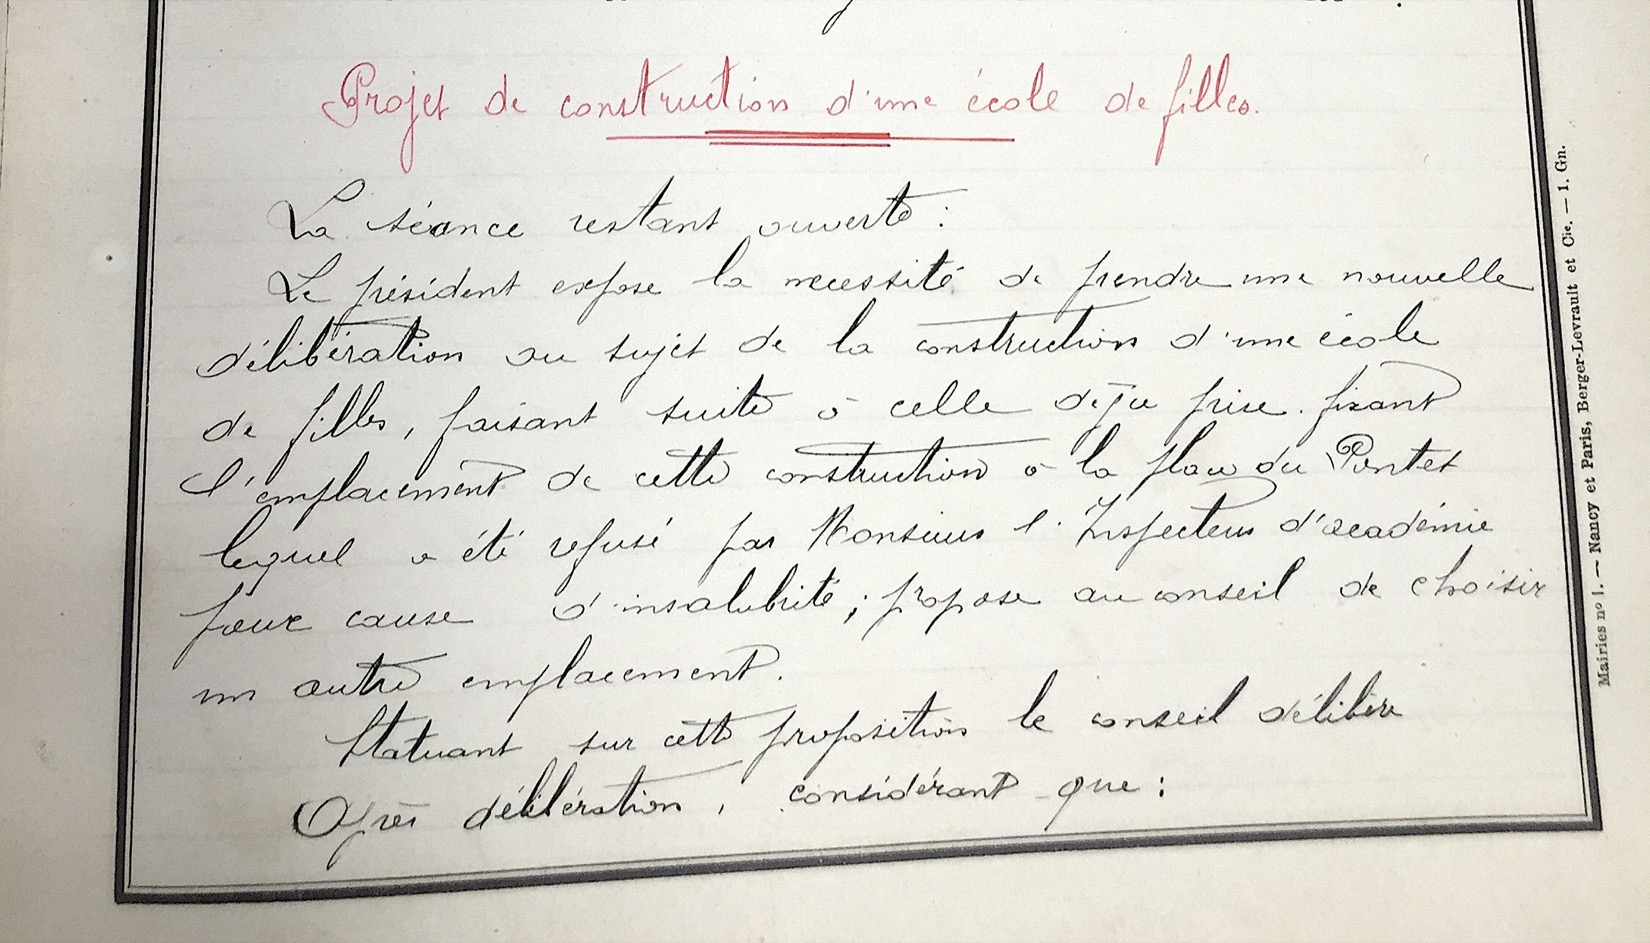 Projet de construction d'une école de filles.
La séance restant ouverte :
Le président expose la nécessité de prendre une nouvelle
délibération au sujet de la construction d'une école
de filles, faisant suite à celle déjà prise fixant
l'emplacement de cette construction à la place du Pontet
lequel a été refusé par Monsieur l'Inspecteur d'académie
pour cause d'insalubrité ; propose au conseil de choisir
un autre emplacement.
Statuant sur cette proposition le conseil délibère
Après délibération, considérant que :
Mairies nº 1. — Nancy et Paris, Berger-Levrault et Cie. — 1. Gn.